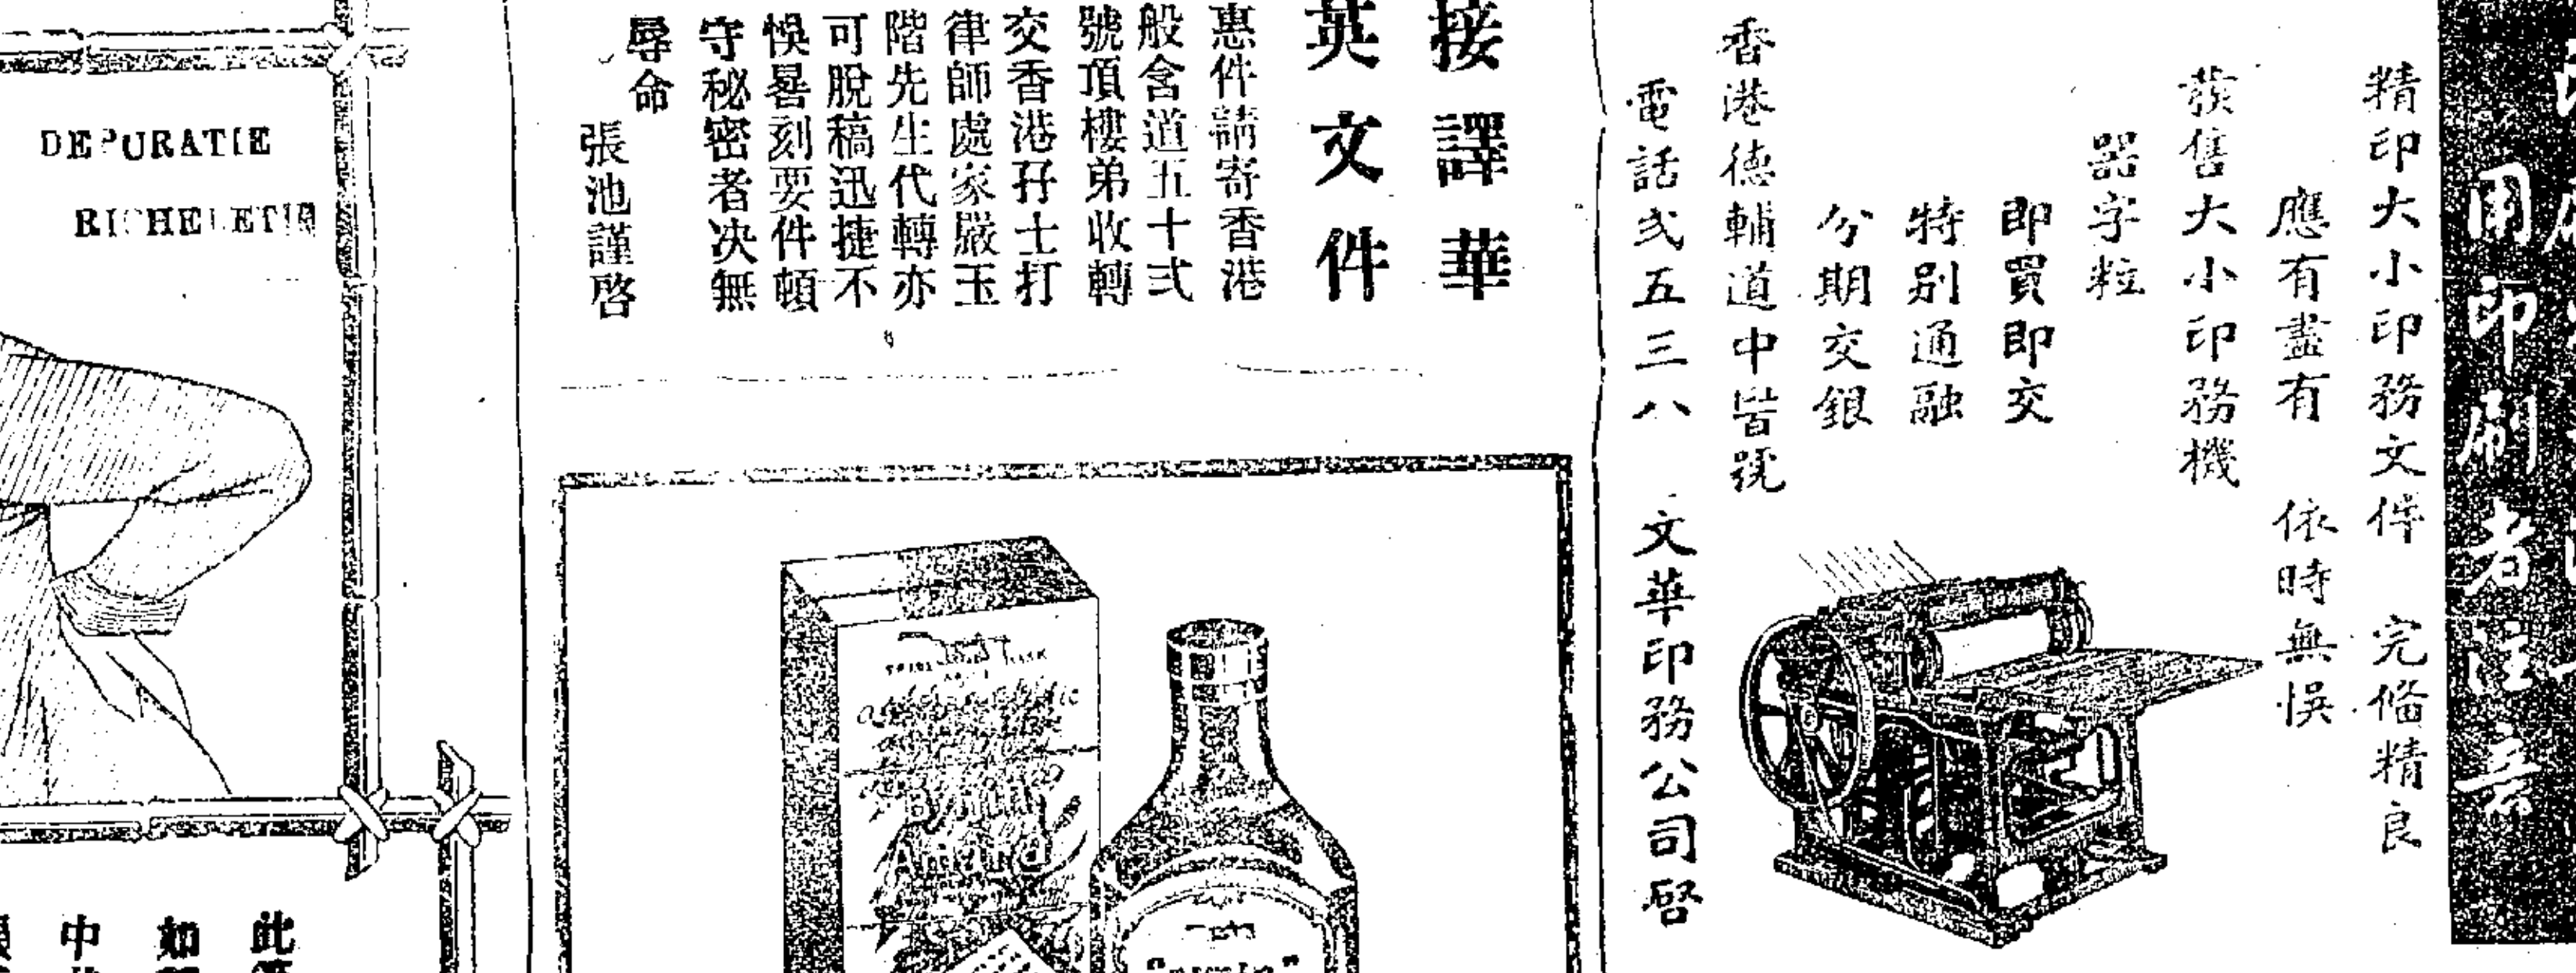 用印刷者注意
精印大小印務文件　完備精良
應有盡有　依時無悞
發售大小印務機
器字粒
即買即交
特别通融
分期交銀
香港德輔道中
電話弍五三八　文華印務公司啓
接譯華
英文件
惠件請寄香港
般含道五十弍
號頂樓弟收轉
交香港孖士打
律師處家嚴玉
階先生代轉亦
可脫稿迅捷不
悞晷刻要件頓
守秘密者决無
辱命
張池謹啓
DEPURATIF
RICHELET
Bynin
Amara
此
如
中